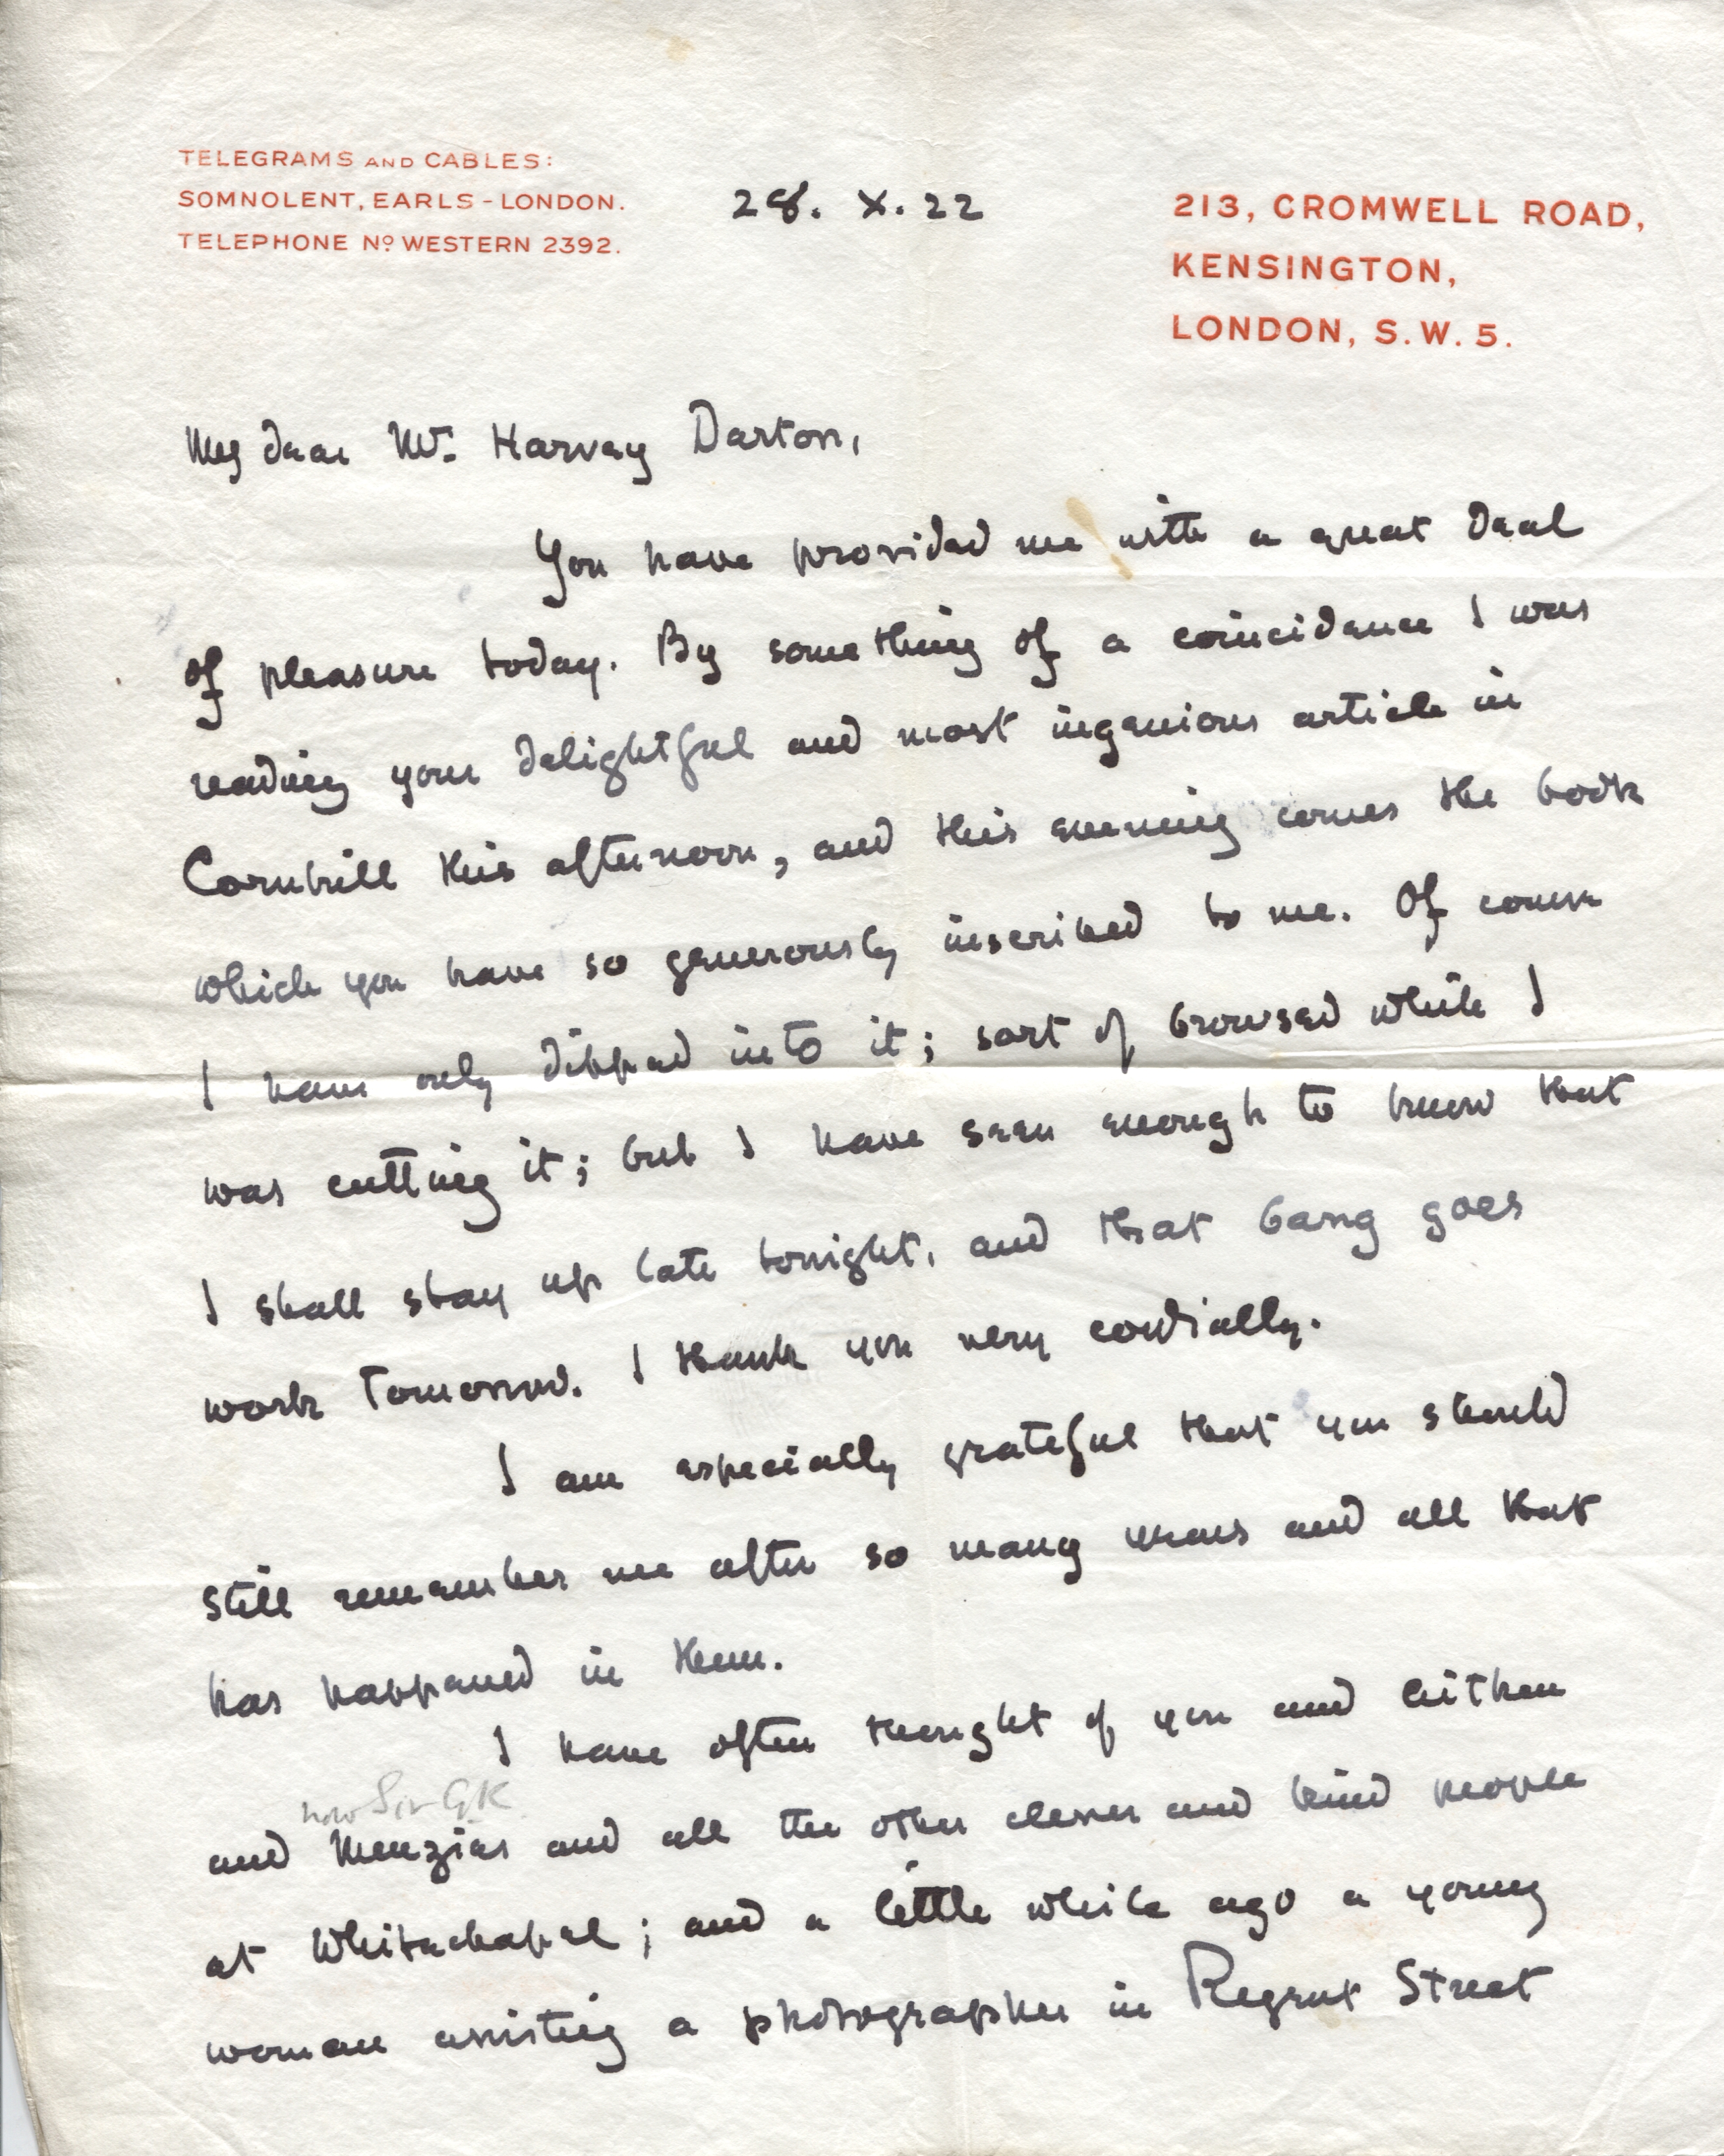 TELEGRAMS AND CABLES:
SOMNOLENT, EARLS - LONDON.
TELEPHONE Nº WESTERN 2392.
28. X. 22
213, CROMWELL ROAD,
KENSINGTON,
LONDON, S.W. 5.
My dear Mr. Harvey Darton,
You have provided me with a great deal
of pleasure today. By something of a coincidence I was
reading your delightful and most ingenious article in
Cornhill this afternoon, and this evening comes the book
which you have so generously inscribed to me. Of course
I have only dipped into it; sort of browsed while I
was cutting it; but I have seen enough to know that
I shall stay up late tonight, and that bang goes
work tomorrow. I thank you very cordially.
I am especially grateful that you should
still remember me after so many years and all that
has happened in them.
I have often thought of you and Aitken
now Sir G.K
and Menzies and all the other clever and kind people
at Whitechapel; and a little while ago a young
woman assisting a photographer in Regent Street